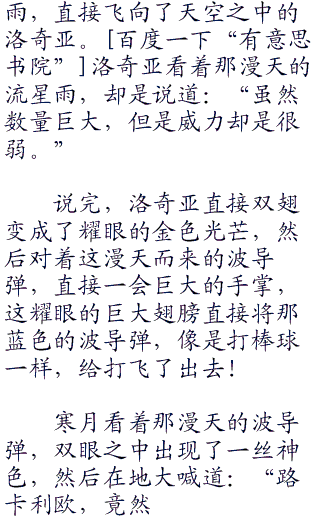 雨，直接飞向了天空之中的
洛奇亚。[百度一下“有意思
书院”]洛奇亚看着那漫天的
流星雨，却是说道：“虽然
数量巨大，但是威力却是很
弱。”
说完，洛奇亚直接双翅
变成了耀眼的金色光芒，然
后对着这漫天而来的波导
弹，直接一会巨大的手掌，
这耀眼的巨大翅膀直接将那
蓝色的波导弹，像是打棒球
一样，给打飞了出去！
寒月看着那漫天的波导
弹，双眼之中出现了一丝神
色，然后在地大喊道：“路
卡利欧，竟然